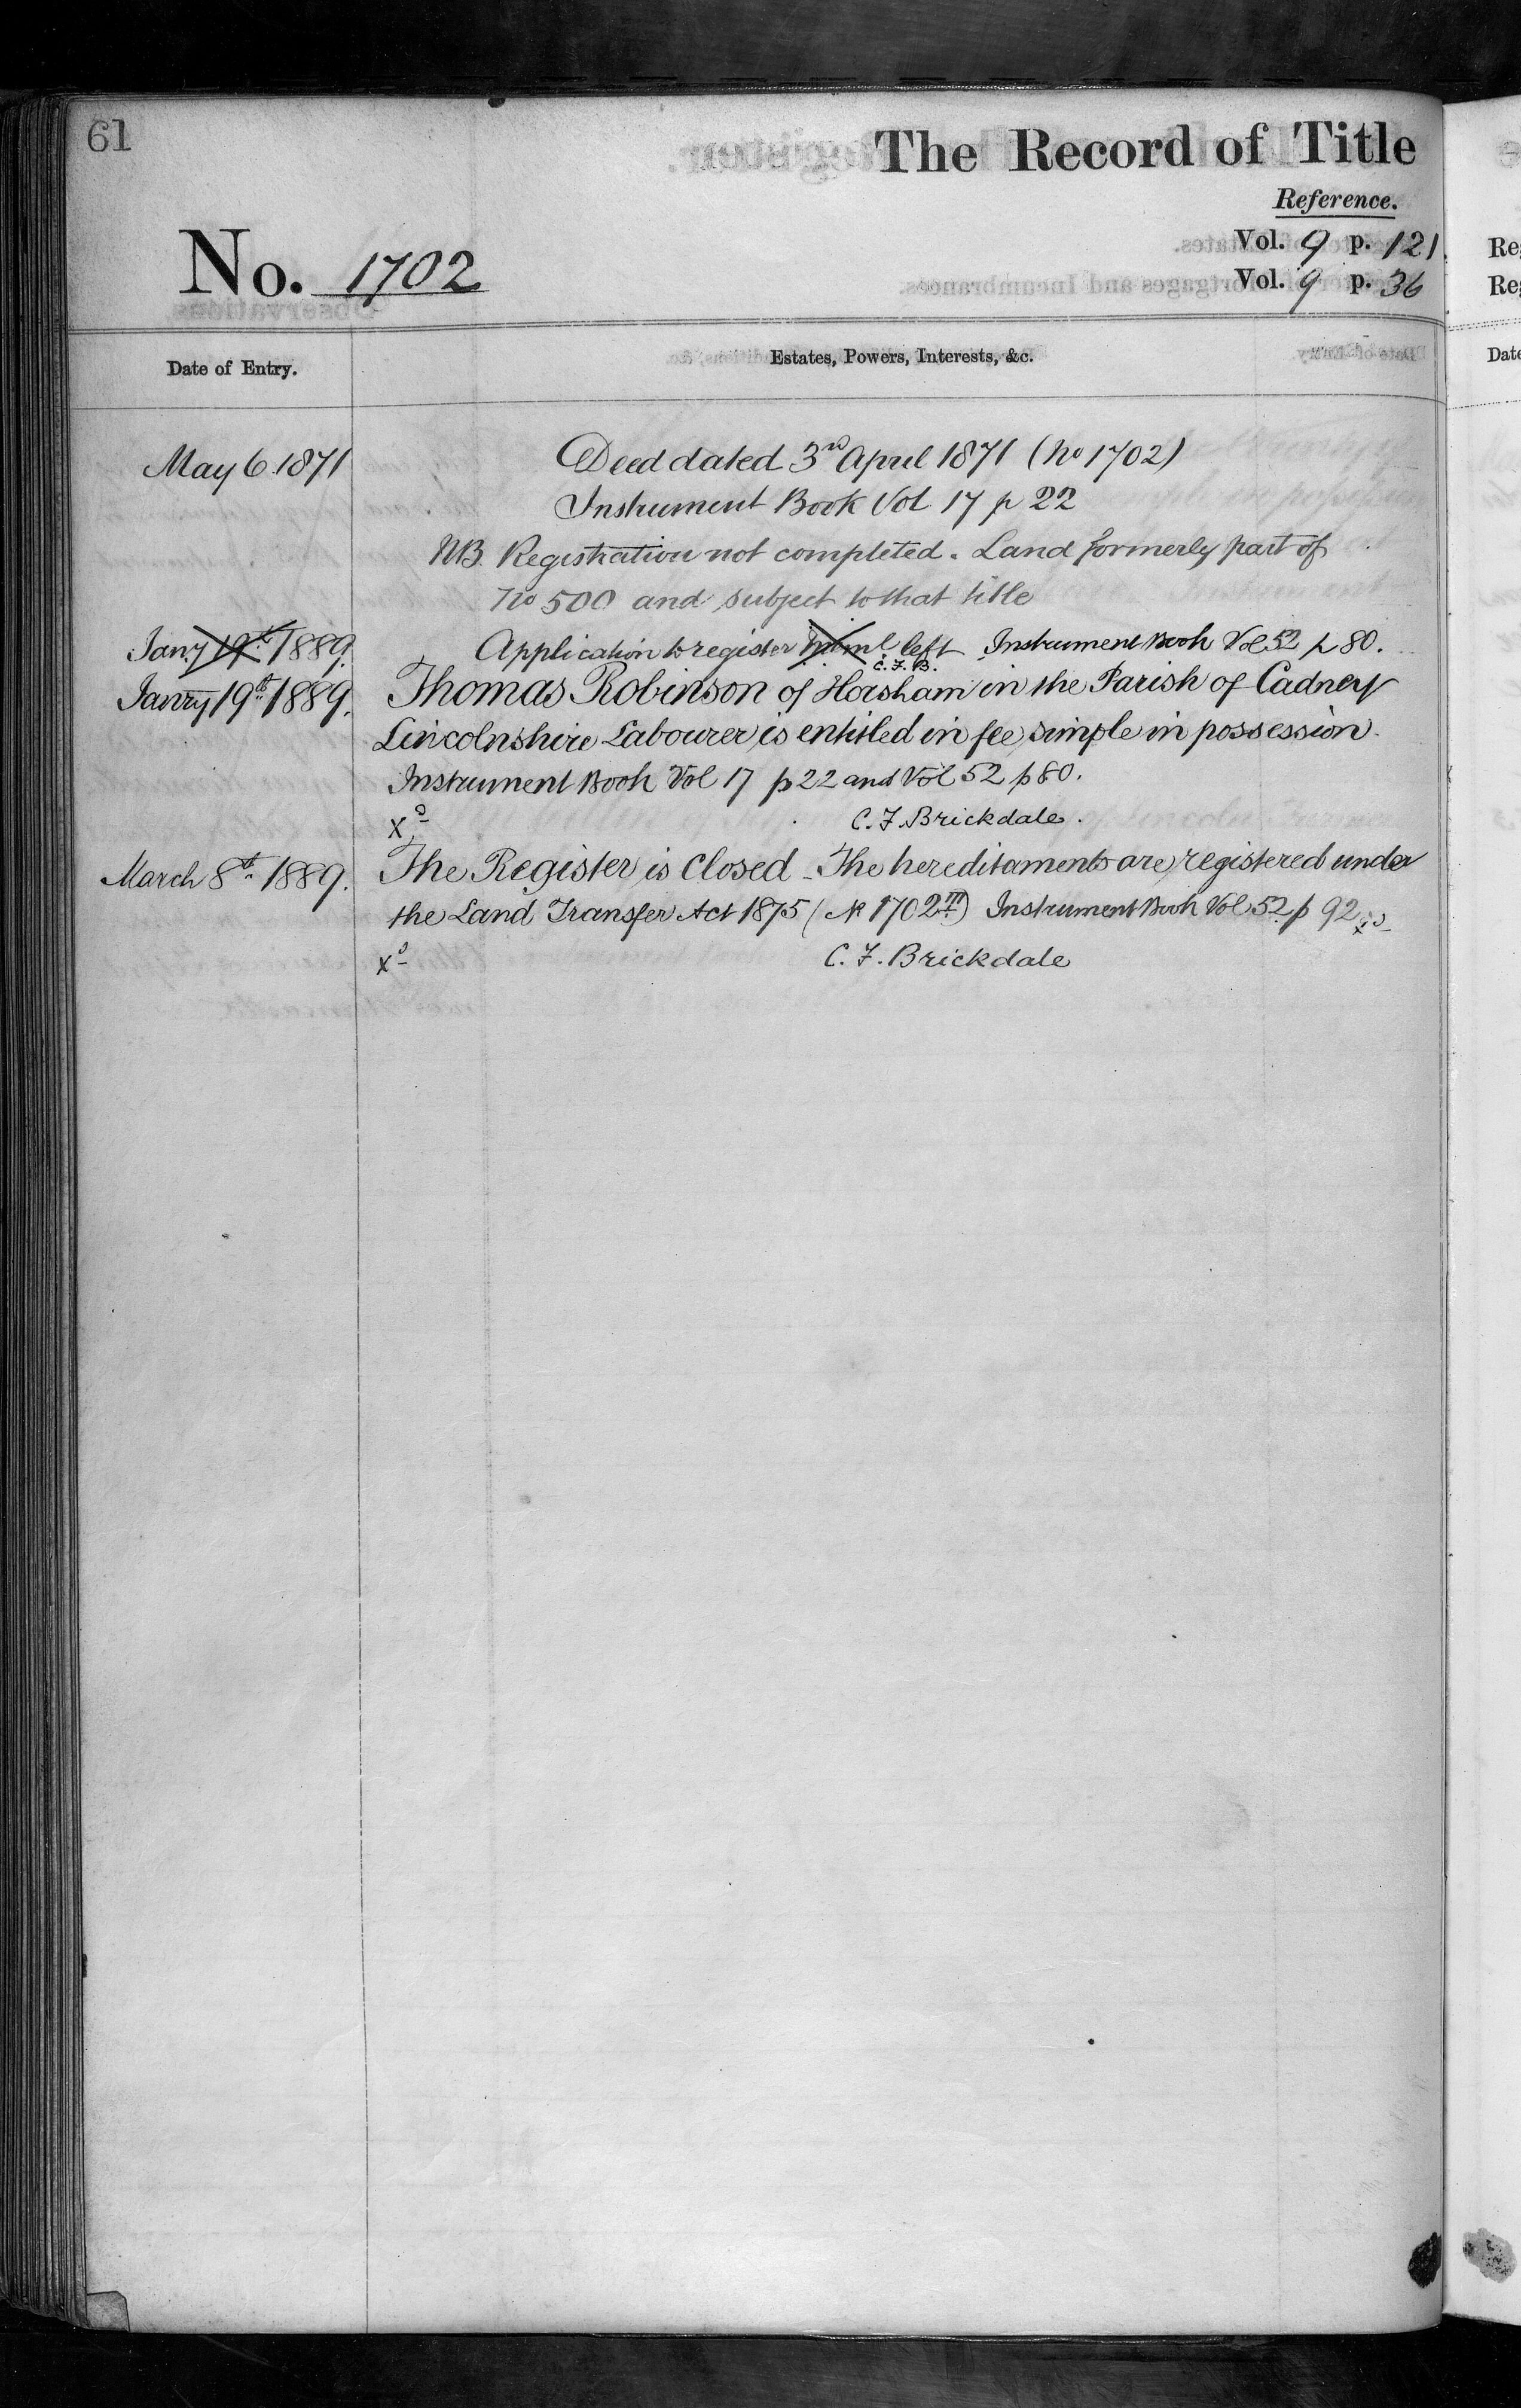 61
The Record of Title
Reference.
No. 1702
Vol. 9 p. 121
Vol. 9 p. 36
Date of Entry.
Estates, Powers, Interests, &c.
May 6 1871
Deed dated 3rd April 1871 (No 1702)
Instrument Book Vol 17 p 22
NB. Registration not completed. Land formerly part of
No 500 and subject to that title
Jany 19th 1889.
Application to register left Instrument Book Vol 52 p 80.
C. F. B.
Janry 19th 1889.
Thomas Robinson of Horsham in the Parish of Cadney
Lincolnshire Labourer is entitled in fee simple in possession.
Instrument Book Vol 17 p 22 and Vol 52 p 80.
Xd C. F. Brickdale.
March 8th 1889.
The Register is Closed - The hereditaments are registered under
the Land Transfer Act 1875 (No 1702III) Instrument Book Vol 52 p 92 xd
Xd C. F. Brickdale
Re
Re
Date